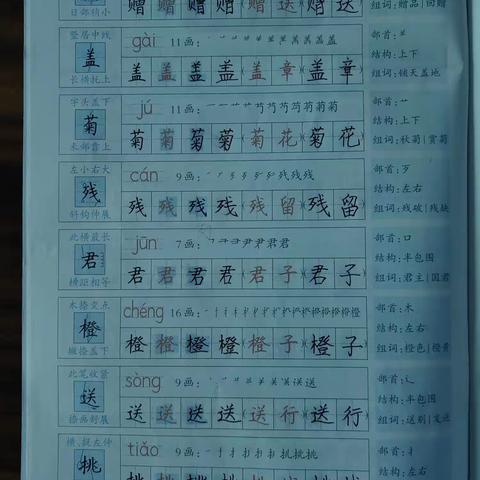 日部稍小 赠 赠 赠 赠 赠 送 赠 送 组词:赠品|回赠
竖居中线 gài 11画: 部首:⺷
盖 结构:上下
长横托上 盖 盖 盖 盖 盖 章 盖 章 组词:铺天盖地
字头盖下 jú 11画: 部首:艹
菊 结构:上下
米部靠上 菊 菊 菊 菊 菊 花 菊 花 组词:秋菊|赏菊
左小右大 cán 9画: 部首:歹
残 结构:左右
斜钩伸展 残 残 残 残 残 留 残 留 组词:残破|残缺
此横最长 jūn 7画: 部首:口
君 结构:半包围
横距相等 君 君 君 君 君 子 君 子 组词:君主|国君
木捺变点 chéng 16画: 部首:木
橙 结构:左右
撇捺盖下 橙 橙 橙 橙 橙 子 橙 子 组词:橙色|橙黄
此笔收紧 sòng 9画: 部首:辶
送 结构:半包围
捺画舒展 送 送 送 送 送 行 送 行 组词:送别|发送
横、提左伸 tiǎo 9画: 部首:扌
挑 结构:左右